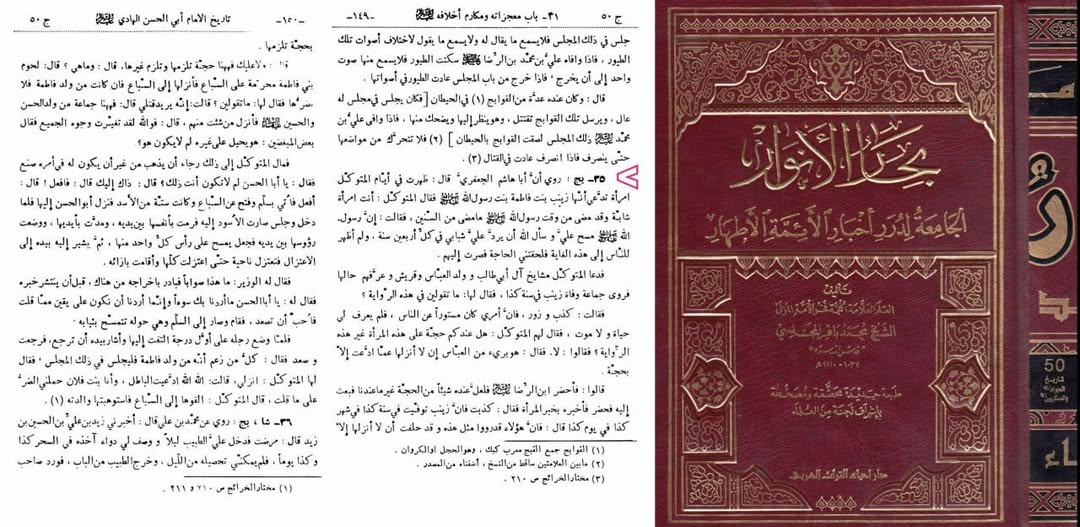 ج ٥٠
٣١- باب معجزاته ومكارم أخلاقه
-١٤٩-
جلس في ذلك المجلس فلا يسمع ما يقال له ولا يسمع ما يقول لاختلاف أصوات تلك
الطيور ، فاذا وافاه علي بن محمد بن الرضا سكتت الطيور فلا يسمع منها صوت
واحد إلى أن يخرج ، فاذا خرج من باب المجلس عادت الطيور في أصواتها .
قال : وكان عنده عدة من القوابج (١) في الحيطان [ فكان يجلس في مجلس له
عال ، ويرسل تلك القوابج تقتتل ، وهو ينظر إليها ويضحك منها ، فاذا وافى علي بن
محمد ذلك المجلس لصقت القوابج بالحيطان ] (٢) فلا تتحرك من مواضعها
حتى ينصرف فاذا انصرف عادت في القتال (٣) .
٣٥- يج : روي أن أبا هاشم الجعفري قال : ظهرت في أيام المتوكل
امرأة تدعي أنها زينب بنت فاطمة بنت رسول الله فقال المتوكل : أنت امرأة
شابة وقد مضى من وقت رسول الله ما مضى من السنين ، فقالت : إن رسول
الله مسح علي وسأل الله أن يرد علي شبابي في كل أربعين سنة ، ولم أظهر
للناس إلى هذه الغاية فلحقتني الحاجة فصرت إليهم .
فدعا المتوكل مشايخ آل أبي طالب و ولد العباس وقريش و عرفهم حالها
فروى جماعة وفاة زينب في سنة كذا ، فقال لها : ما تقولين في هذه الرواية ؟
فقالت : كذب و زور ، فان أمري كان مستوراً عن الناس ، فلم يعرف لي
حياة ولا موت ، فقال لهم المتوكل : هل عندكم حجة على هذه المرأة غير هذه
الرواية ؟ فقالوا : لا . فقال : هو بريء من العباس إن لا أنزلها عما ادعت إلا
بحجة .
قالوا : فأحضر ابن الرضا فلعل عنده شيئاً من الحجة غير ما عندنا فبعث
إليه فحضر فأخبره بخبر المرأة فقال : كذبت فان زينب توفيت في سنة كذا في شهر
كذا في يوم كذا قال : فان هؤلاء قد رووا مثل هذه و قد حلفت أن لا أنزلها إلا
(١) القوابج جمع القبج معرب كبك ، وهو الحجل او الكروان .
(٢) ما بين العلامتين ساقط من النسخ ، أضفناه من المصدر .
(٣) مختار الخرائج ص ٢١٠ .
-١٥٠-
تاريخ الامام أبي الحسن الهادي
ج ٥٠
بحجة تلزمها .
قال : ولا عليك فههنا حجة تلزمها وتلزم غيرها ، قال : وما هي ؟ قال : لحوم
بني فاطمة محرمة على السباع فأنزلها إلى السباع فان كانت من ولد فاطمة فلا
تضرها فقال لها : ما تقولين ؟ قالت : إنه يريد قتلي قال : فههنا جماعة من ولد الحسن
والحسين فأنزل من شئت منهم ، قال : فوالله لقد تغيرت وجوه الجميع فقال
بعض المبغضين : هو يحيل على غيره لم لا يكون هو ؟
فمال المتوكل إلى ذلك رجاء أن يذهب من غير أن يكون له في أمره صنع
فقال : يا أبا الحسن لم لا تكون أنت ذلك ؟ قال : ذاك إليك قال : فافعل ! قال :
أفعل فأتي بسلم وفتح عن السباع و كانت ستة من الأسد فنزل أبو الحسن إليها فلما
دخل وجلس صارت الأسود إليه فرمت بأنفسها بين يديه ، ومدت بأيديها ، ووضعت
رؤوسها بين يديه فجعل يمسح على رأس كل واحد منها ، ثم يشير إليه بيده إلى
الاعتزال فتعتزل ناحية حتى اعتزلت كلها وأقامت بازائه .
فقال له الوزير : ما هذا صواباً فبادر باخراجه من هناك ، قبل أن ينتشر خبره
فقال له : يا أبا الحسن ما أردنا بك سوءاً وإنما أردنا أن نكون على يقين مما قلت
فأحب أن تصعد ، فقام وصار إلى السلم وهي حوله تتمسح بثيابه .
فلما وضع رجله على أول درجة التفت إليها وأشار بيده أن ترجع ، فرجعت
و صعد فقال : كل من زعم أنه من ولد فاطمة فليجلس في ذلك المجلس ، فقال
لها المتوكل : انزلي ، قالت : الله الله ادعيت الباطل ، وأنا بنت فلان حملني الضر
على ما قلت ، قال المتوكل : القوها إلى السباع فاستوهبتها والدته (١) .
٣٦- شا ، يج : روي عن محمد بن علي قال : أخبرني زيد بن علي بن الحسين بن
زيد قال : مرضت فدخل علي الطبيب ليلاً و وصف لي دواء آخذه في السحر كذا
و كذا يوماً ، فلم يمكني تحصيله من الليل ، وخرج الطبيب من الباب ، فورد صاحب
(١) مختار الخرائج ص ٢١٠ و ٢١١ .
بحار الأنوار
الجامعة لدرر أخبار الأئمة الأطهار
تأليف
العلم العلامة الحجة فخر الأمة المولى
الشيخ محمد باقر المجلسي
١٠٣٧ - ١١١٠هـ
طبعة جديدة محققة ومصححة
بإشراف لجنة من العلماء
دار احياء التراث العربي
50
تاريخ
الجواد
والعسكريين